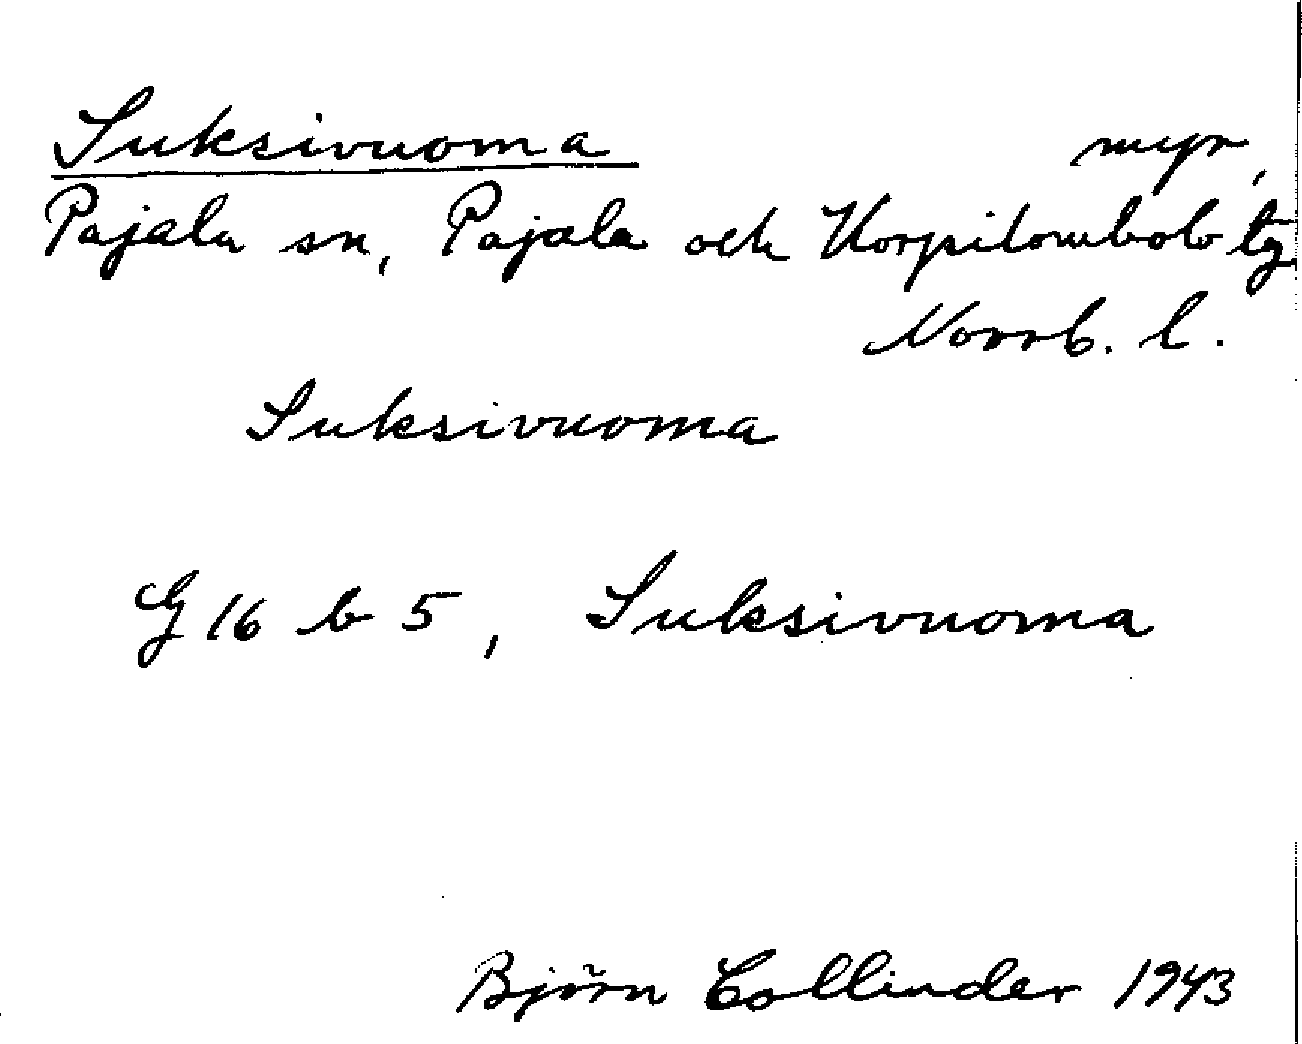 Suksivuoma myr,
Pajala sn, Pajala och Korpilombolo tg
Norrb. l.
Suksivuoma
G 16 b 5, Suksivuoma
Björn Collinder 1943